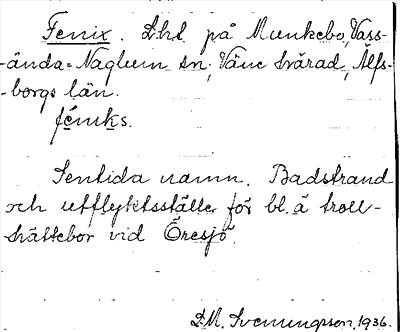 Fenix. Lht på Munkebo, Vass-
-ända-Naglum sn, Väne härad, Älfs-
-borgs län.
féniks.
Sentida namn. Badstrand
och utflyktsställe för bl. a troll-
hättebor vid Öresjö.
D.M. Svenungsson, 1936.